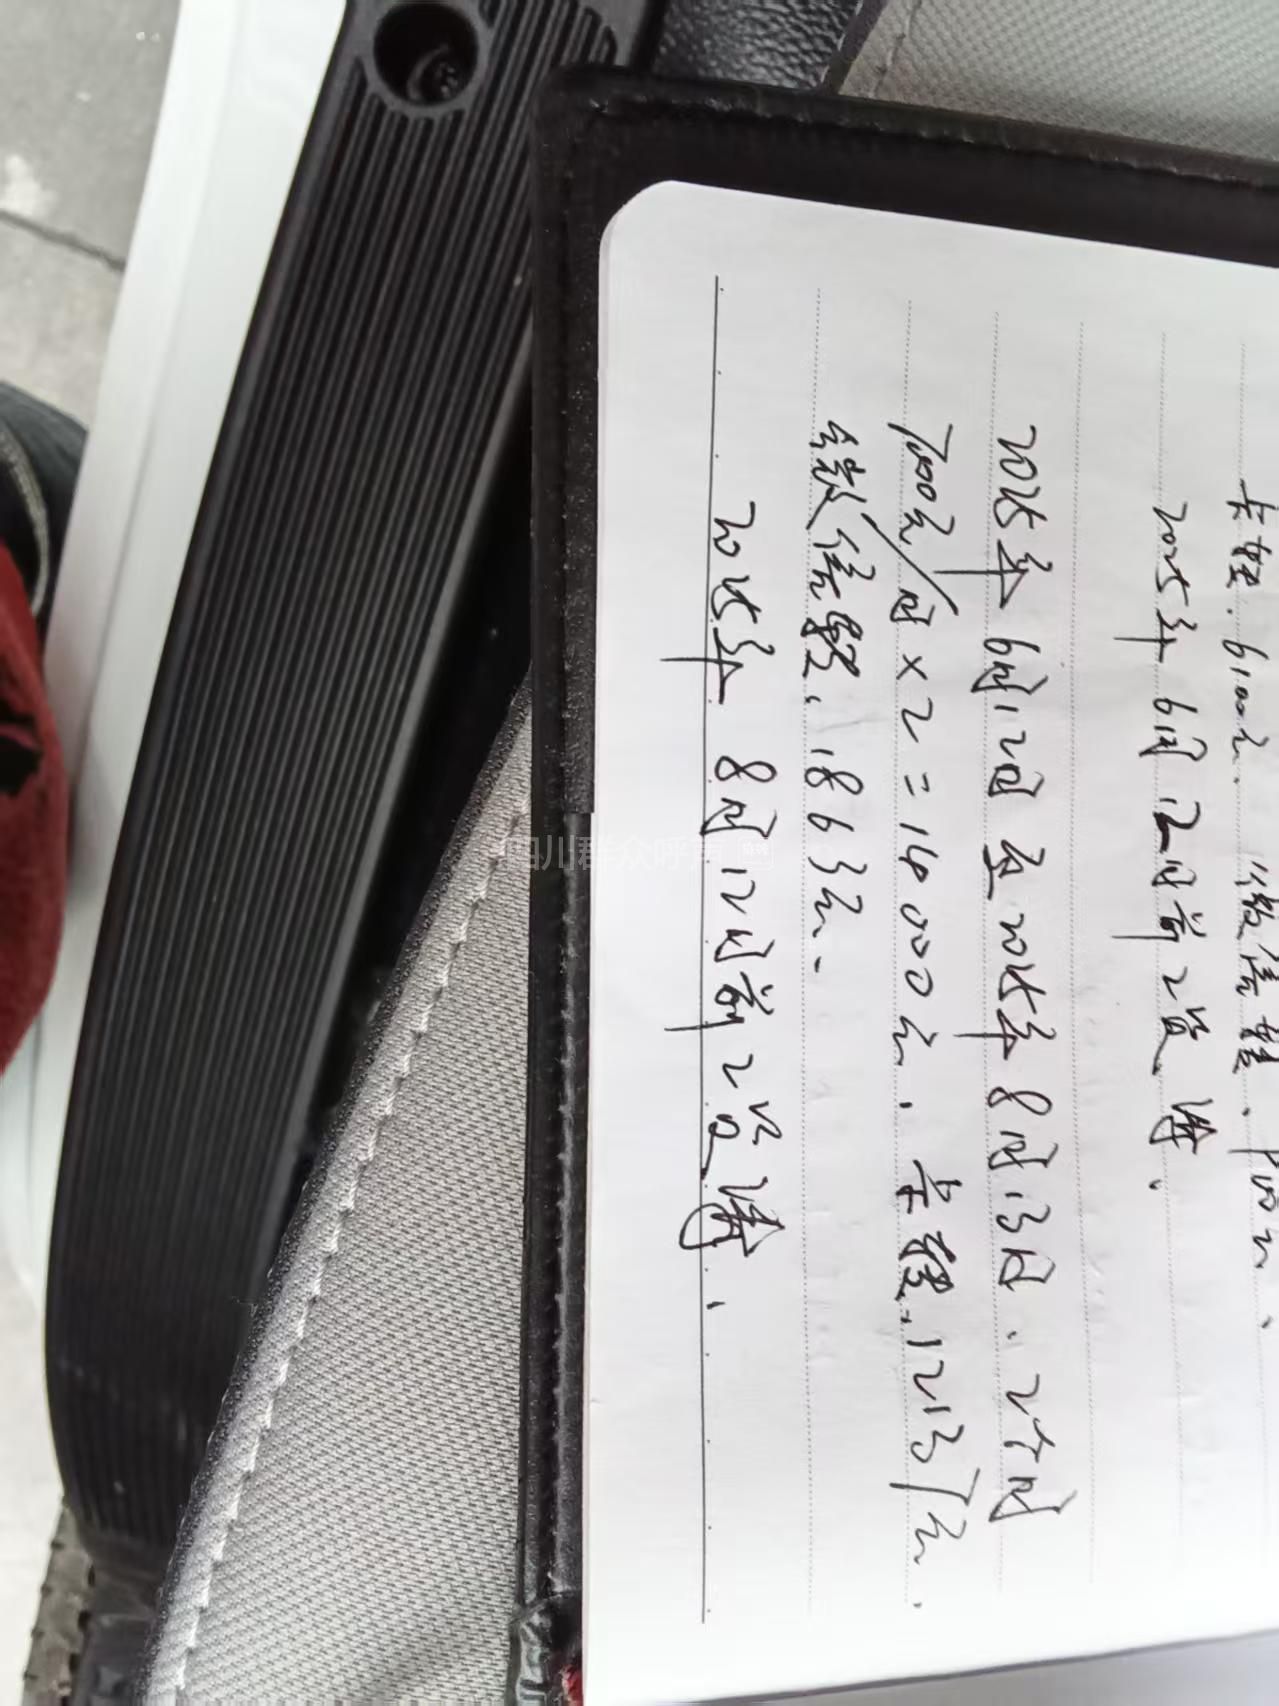 卡转.6100元. 微信转.900元.
2025年6月12日前工资清.
2025年6月12日至2025年8月13日.2个月
7000元/月×2=14000元.卡转.12137元.
微信转.1863元.
2025年8月12日前工资清.
四川群众呼声